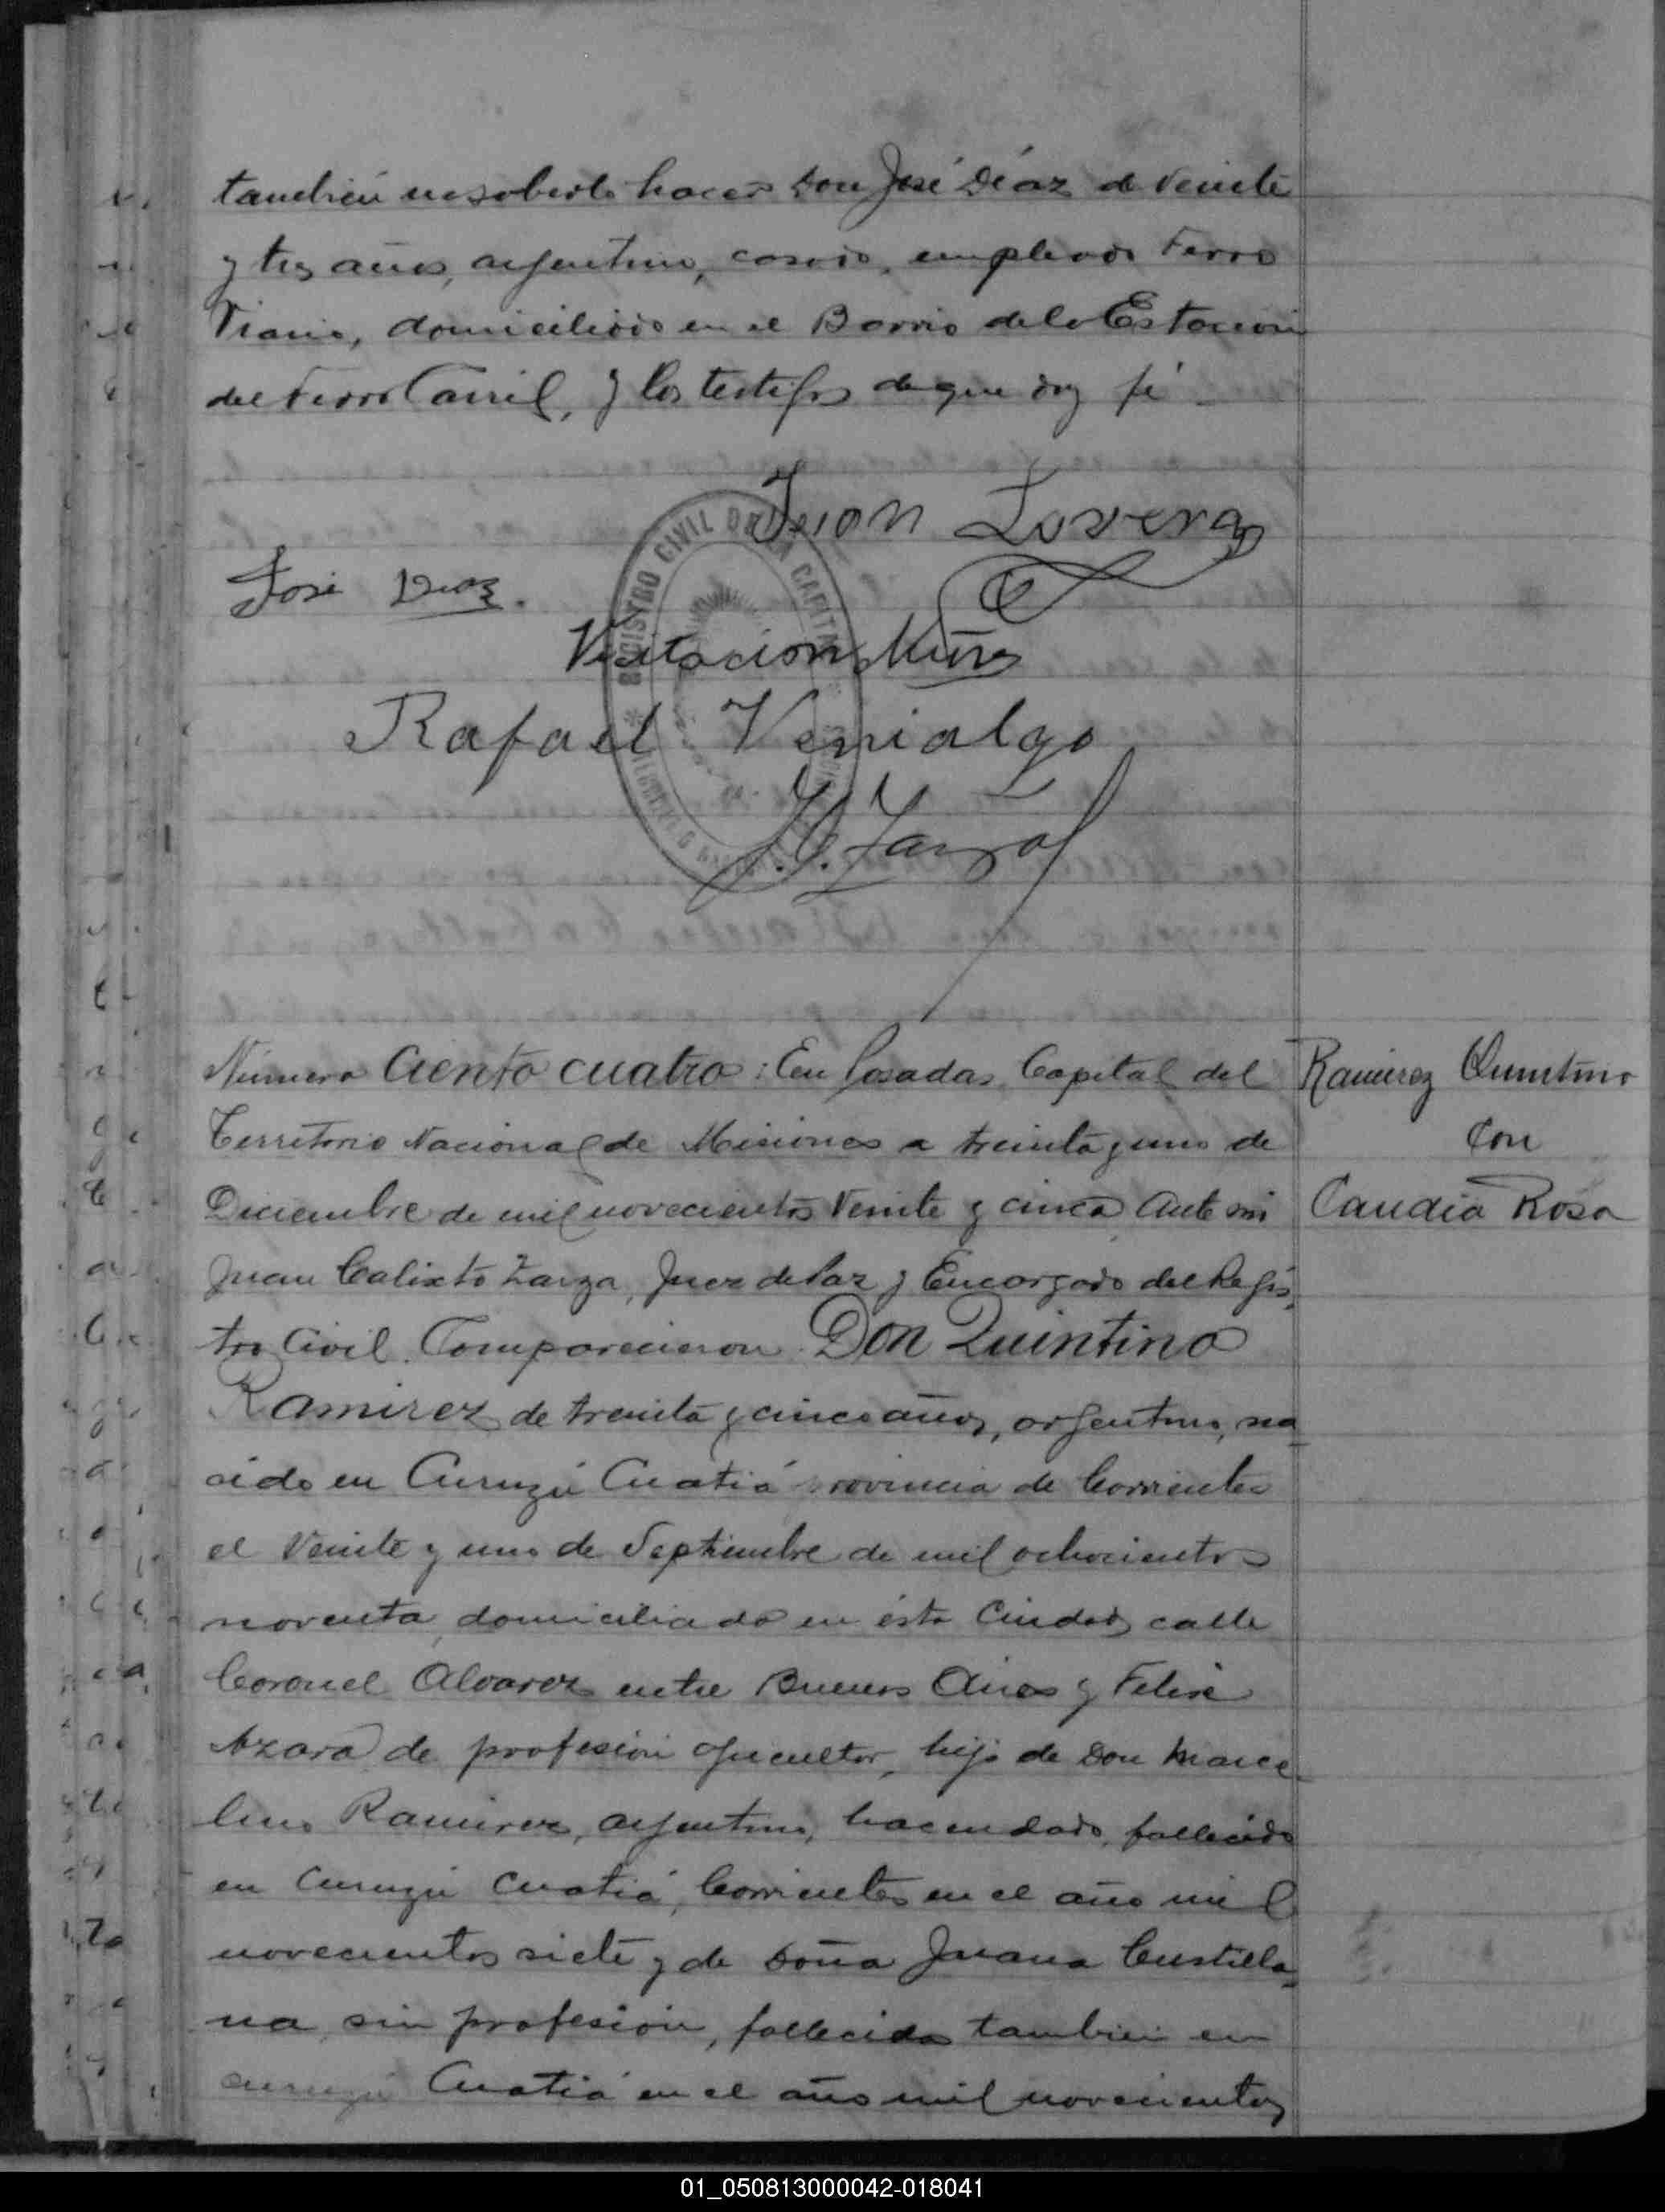 también no saberlo hacer Don José Díaz de veinte
y tres años, argentino, casado, empleado Ferro
Viario, domiciliado en el Barrio de la Estacion
del Ferro Carril, y los testigos de que doy fé
Juan Lovera
José Diaz.
Visitacion Muñoz
Rafael Venialgo
J. C. Zarza
REGISTRO CIVIL DE LA CAPITAL
Número Ciento cuatro: En Posadas, Capital del
Territorio Nacional de Misiones a treinta y uno de
Diciembre de mil novecientos veinte y cinco, ante mi
Juan Calixto Zarza, Juez de Paz y Encargado del Regis
tro Civil. Comparecieron Don Quintino
Ramirez de treinta y cinco años, argentino, na
cido en Curuzú Cuatiá provincia de Corrientes
el veinte y uno de Septiembre de mil ochocientos
noventa, domiciliado en ésta Ciudad, calle
Coronel Alvarez entre Buenos Aires y Felix
Azara de profesión agricultor, hijo de Don Marce
lino Ramirez, argentino, hacendado, fallecido
en Curuzú Cuatiá, Corrientes en el año mil
novecientos siete y de Doña Juana
na, sin profesión, fallecida también en
Curuzú Cuatiá en el año mil novecientos
Ramirez Quintino
Con
Candia Rosa
01_050813000042-018041